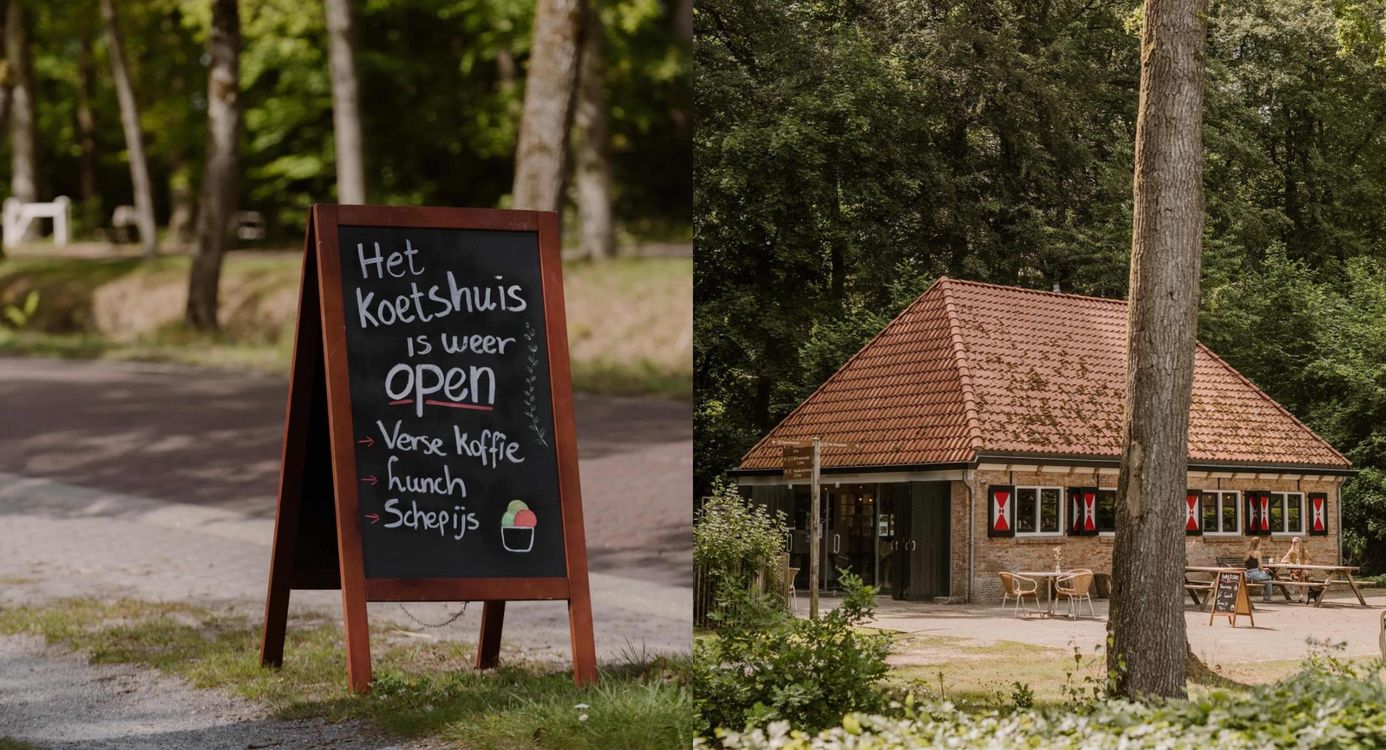 Het
Koetshuis
is weer
open
→ Verse koffie
→ Lunch
→ Schepijs